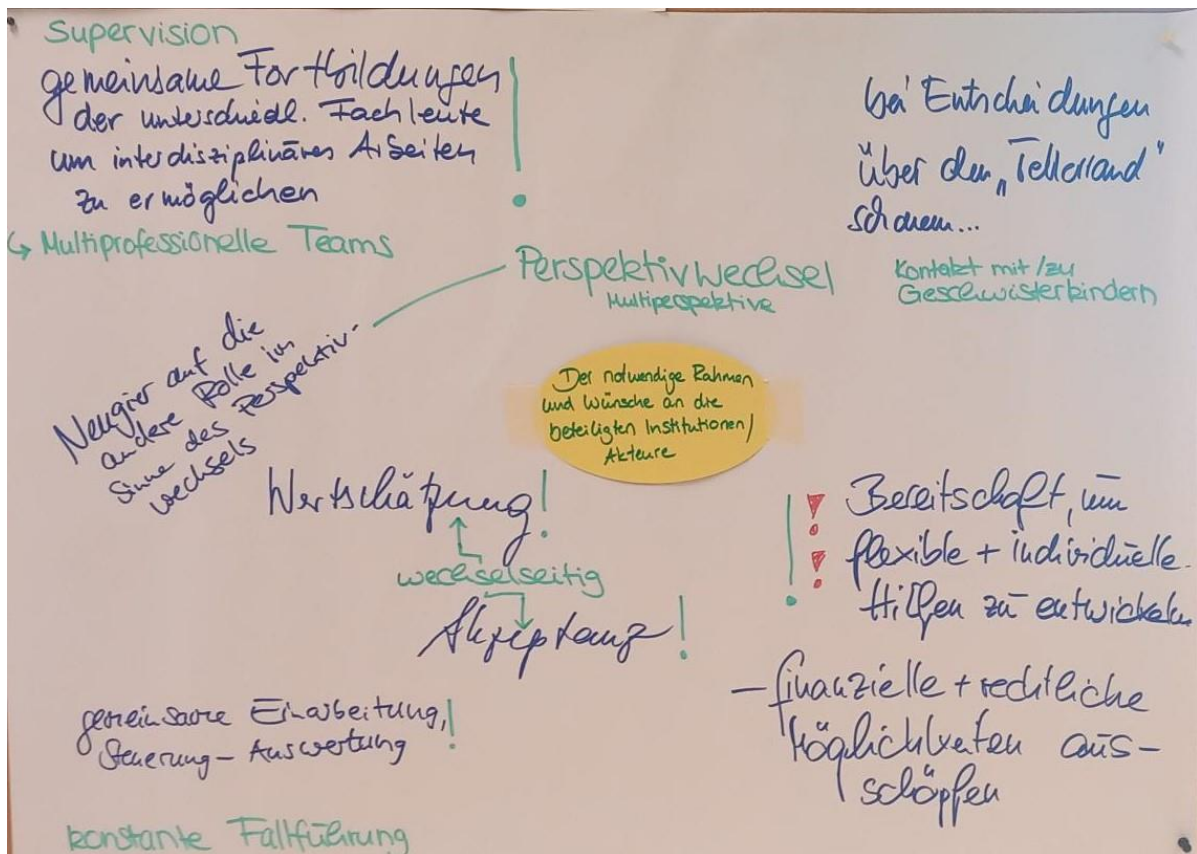 Supervision
gemeinsame Fortbildungen
der unterschiedl. Fachleute
um interdisziplinäres Arbeiten
zu ermöglichen
!
↳ Multiprofessionelle Teams
bei Entscheidungen
über den „Tellerrand"
schauen...
Kontakt mit/zu
Geschwisterkindern
Perspektivwechsel
Multiperspektive
Neugier auf die
andere Rolle im
Sinne des Perspektiv-
wechsels
Der notwendige Rahmen
und Wünsche an die
beteiligten Institutionen/
Akteure
Wertschätzung!
wechselseitig
Akzeptanz!
!!! Bereitschaft, um
flexible + individuelle
Hilfen zu entwickeln
– finanzielle + rechtliche
Möglichkeiten aus-
schöpfen
gemeinsame Einarbeitung,
Steuerung – Auswertung!
konstante Fallführung